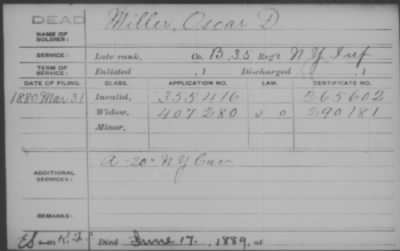 DEAD
NAME OF SOLDIER: Miller, Oscar D.
SERVICE: Late rank, Co. B, 35 Reg't N Y Inf
TERM OF SERVICE: Enlisted , 1 Discharged , 1
DATE OF FILING. CLASS. APPLICATION NO. LAW. CERTIFICATE NO.
1880 Mar 31 Invalid, 355416 265602
Widow, 407280 290181
Minor,
ADDITIONAL SERVICES: A - 20 - N Y Cav
REMARKS:
Died June 17, 1889, at